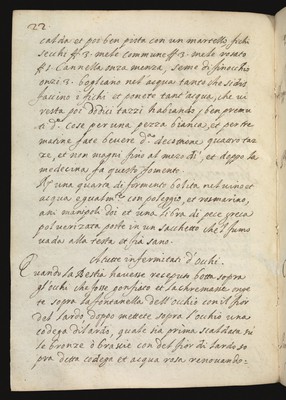 22
calda et poi ben pista con un martello, fichi
secchi ℔ 3. mele commune ℔ 3. mele rosato
℔ 1. Cannella onza menza, seme di finocchio
onzi 3. bogliano nel acqua tanto che si
faccino i fichi et ponete tant'acqua, che vi
resta poi dodici tazzi habiando, ben premu
ti d.e cose per una pezza bianca, et per tre
matine fate bevere d.o decotione quattro taz
ze, et non magni fino al mezo dì, et doppo la
medecina fa questo fomento.
una quarta di formento bollita nel vino et
acqua egualm.te con poleggio, et rosmarino,
ana manipoli doi et una libra di pece greca
polverizata poste in un sacchetto che il fumo
vada alla testa et sia sano.
A tutte infermitati d'occhi.
Quando la Bestia havesse recepute botte sopra
gl'occhi che fosse gonfiato et lachremasse
sopra la fontanella dell'occhio con il fior
del lardo, doppo mettete sopra l'occhio una
codega di lardo, quale sia prima scaldata
le bronze ò brasie con del fior di lardo so
pra detta codega et acqua rosa renovando